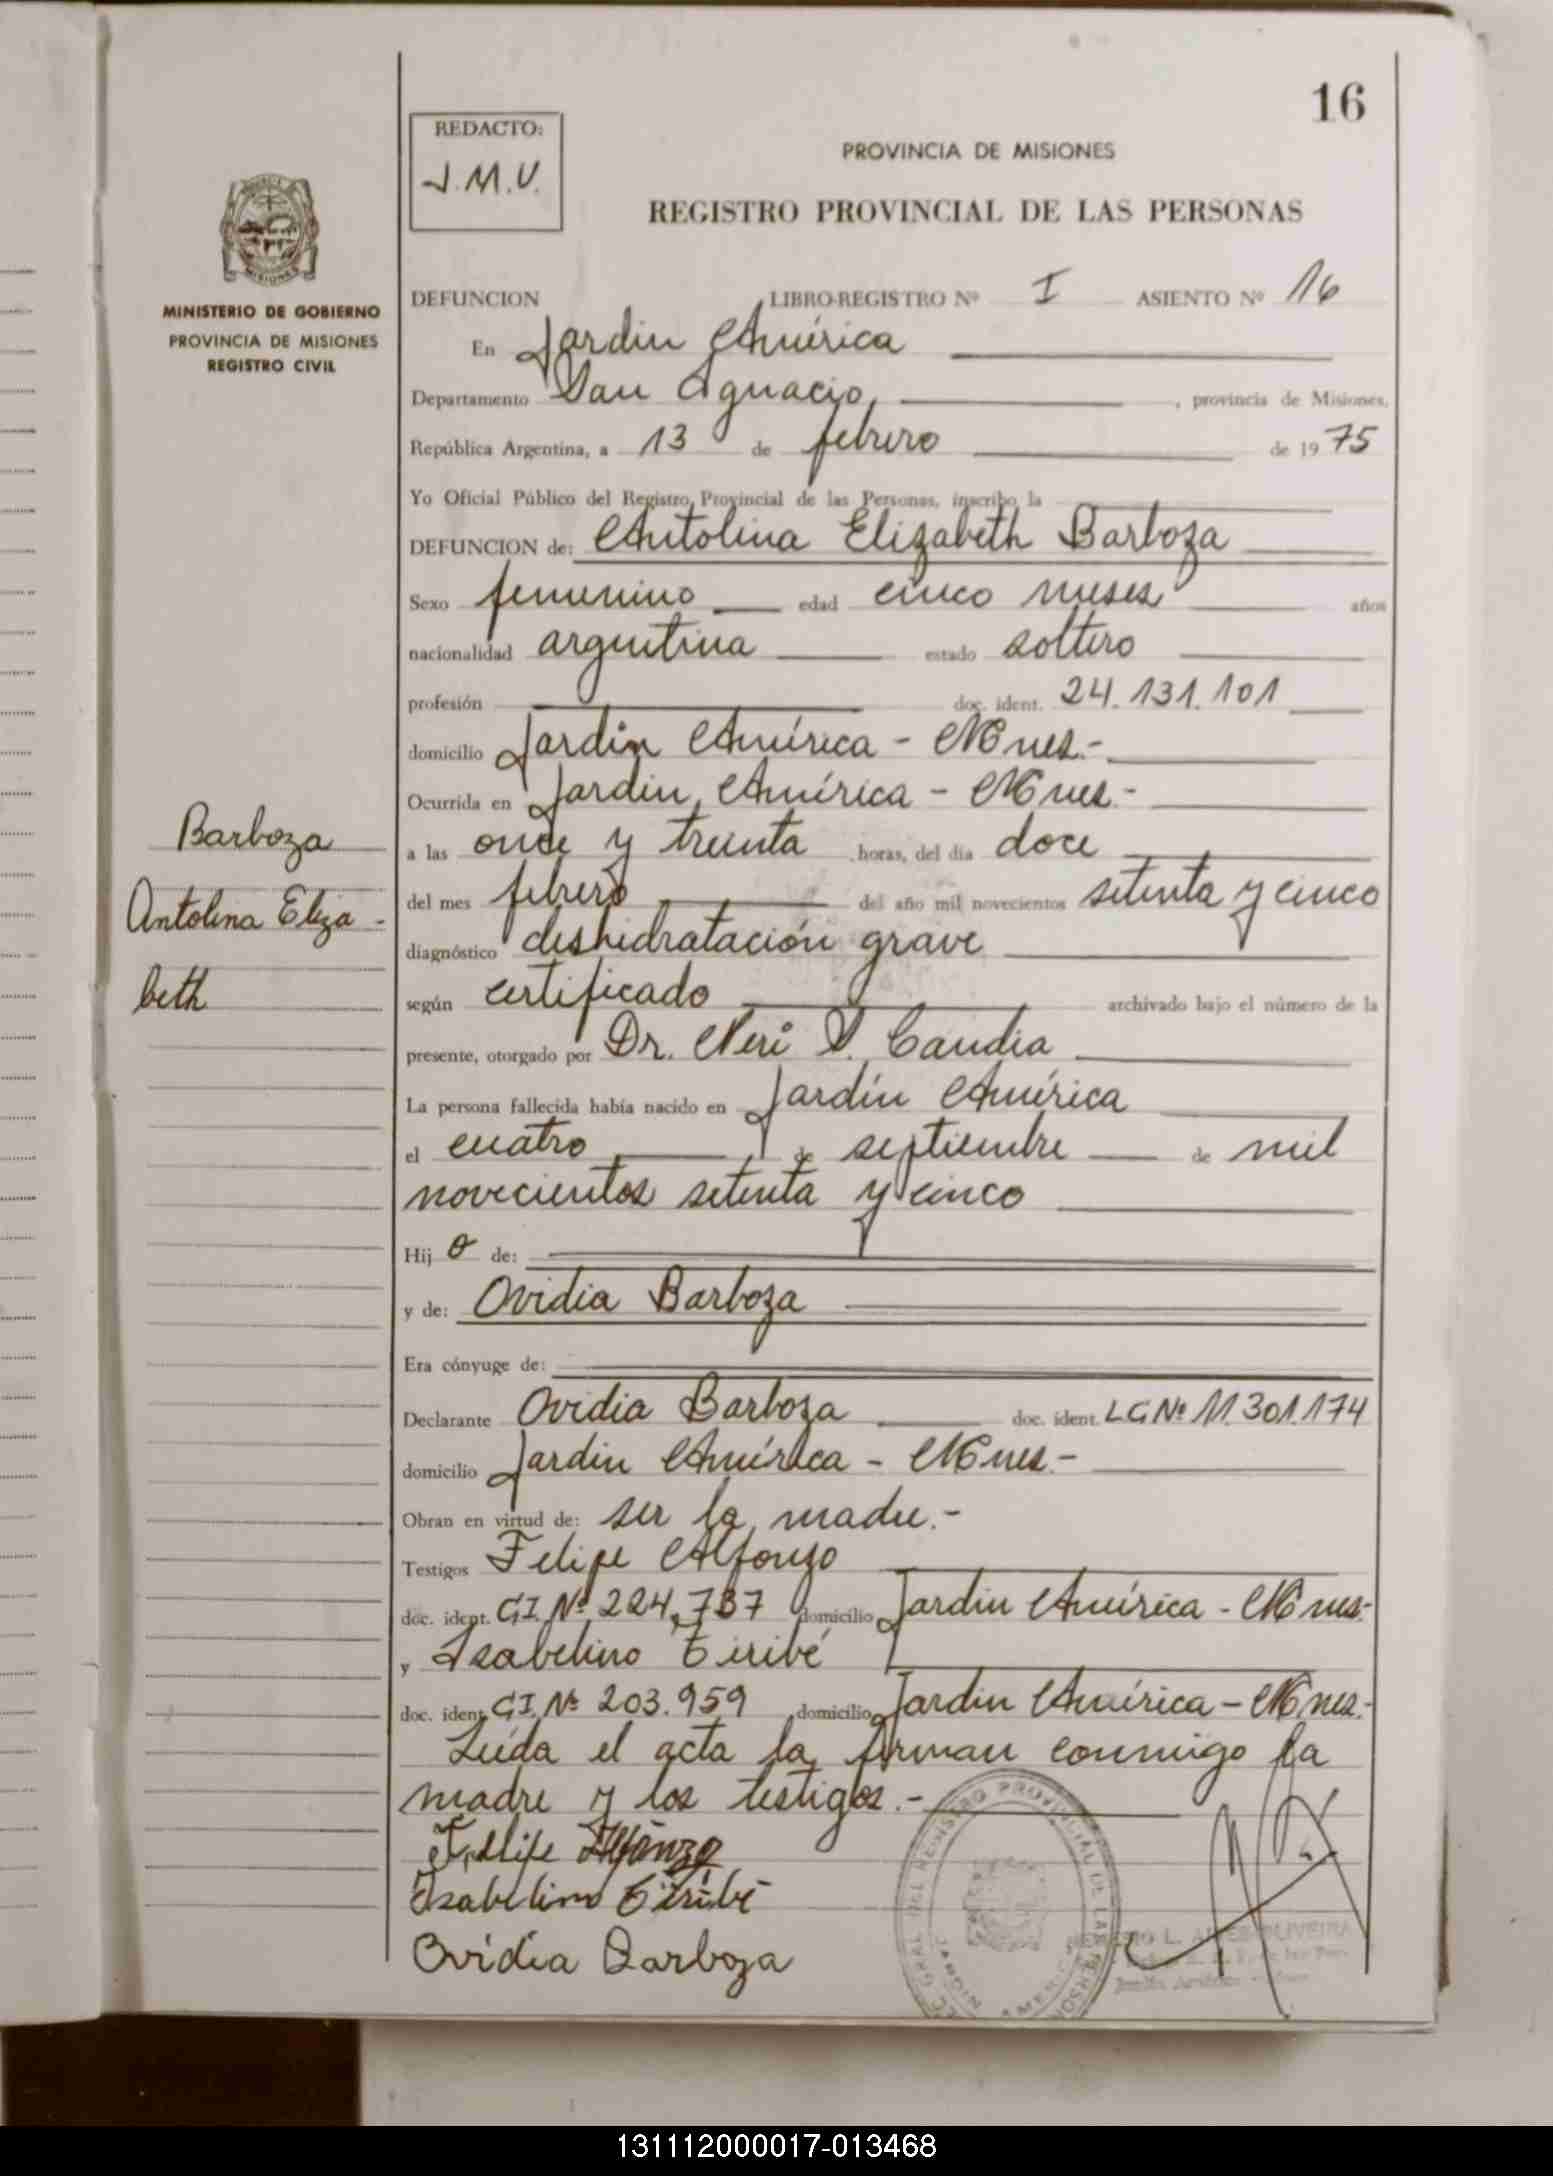 16
REDACTO:
J.M.V.
PROVINCIA DE MISIONES
REGISTRO PROVINCIAL DE LAS PERSONAS
MINISTERIO DE GOBIERNO
PROVINCIA DE MISIONES
REGISTRO CIVIL
DEFUNCION LIBRO-REGISTRO Nº I ASIENTO Nº 16
En Jardin América
Departamento San Ignacio, , provincia de Misiones,
República Argentina, a 13 de febrero de 1975
Yo Oficial Público del Registro Provincial de las Personas, inscribo la
DEFUNCION de: Antolina Elizabeth Barboza
Sexo femenino edad cinco meses años
nacionalidad argentina estado soltero
profesión doc. ident. 24.131.101
domicilio Jardin América - Mnes.-
Ocurrida en Jardin América - Mnes.-
a las once y treinta horas, del día doce
del mes febrero del año mil novecientos setenta y cinco
diagnóstico deshidratación grave
según certificado archivado bajo el número de la
presente, otorgado por Dr. Neri V. Candia
La persona fallecida había nacido en Jardín América
el cuatro de septiembre de mil
novecientos setenta y cinco
Hij o de:
y de: Ovidia Barboza
Era cónyuge de:
Declarante Ovidia Barboza doc. ident. LC Nº 11.301.174
domicilio Jardin América - Mnes.-
Obran en virtud de: ser la madre.-
Testigos Felipe Alfonzo
doc. ident. C.I. Nº 224.737 domicilio Jardin América - Mnes.-
y Isabelino Tiribé
doc. ident. C.I. Nº 203.959 domicilio Jardin América - Mnes.-
Leída el acta la firman conmigo la
madre y los testigos.-
Felipe Alfonzo
Isabelino Tiribé
Ovidia Barboza
Barboza
Antolina Eliza-
beth
131112000017-013468